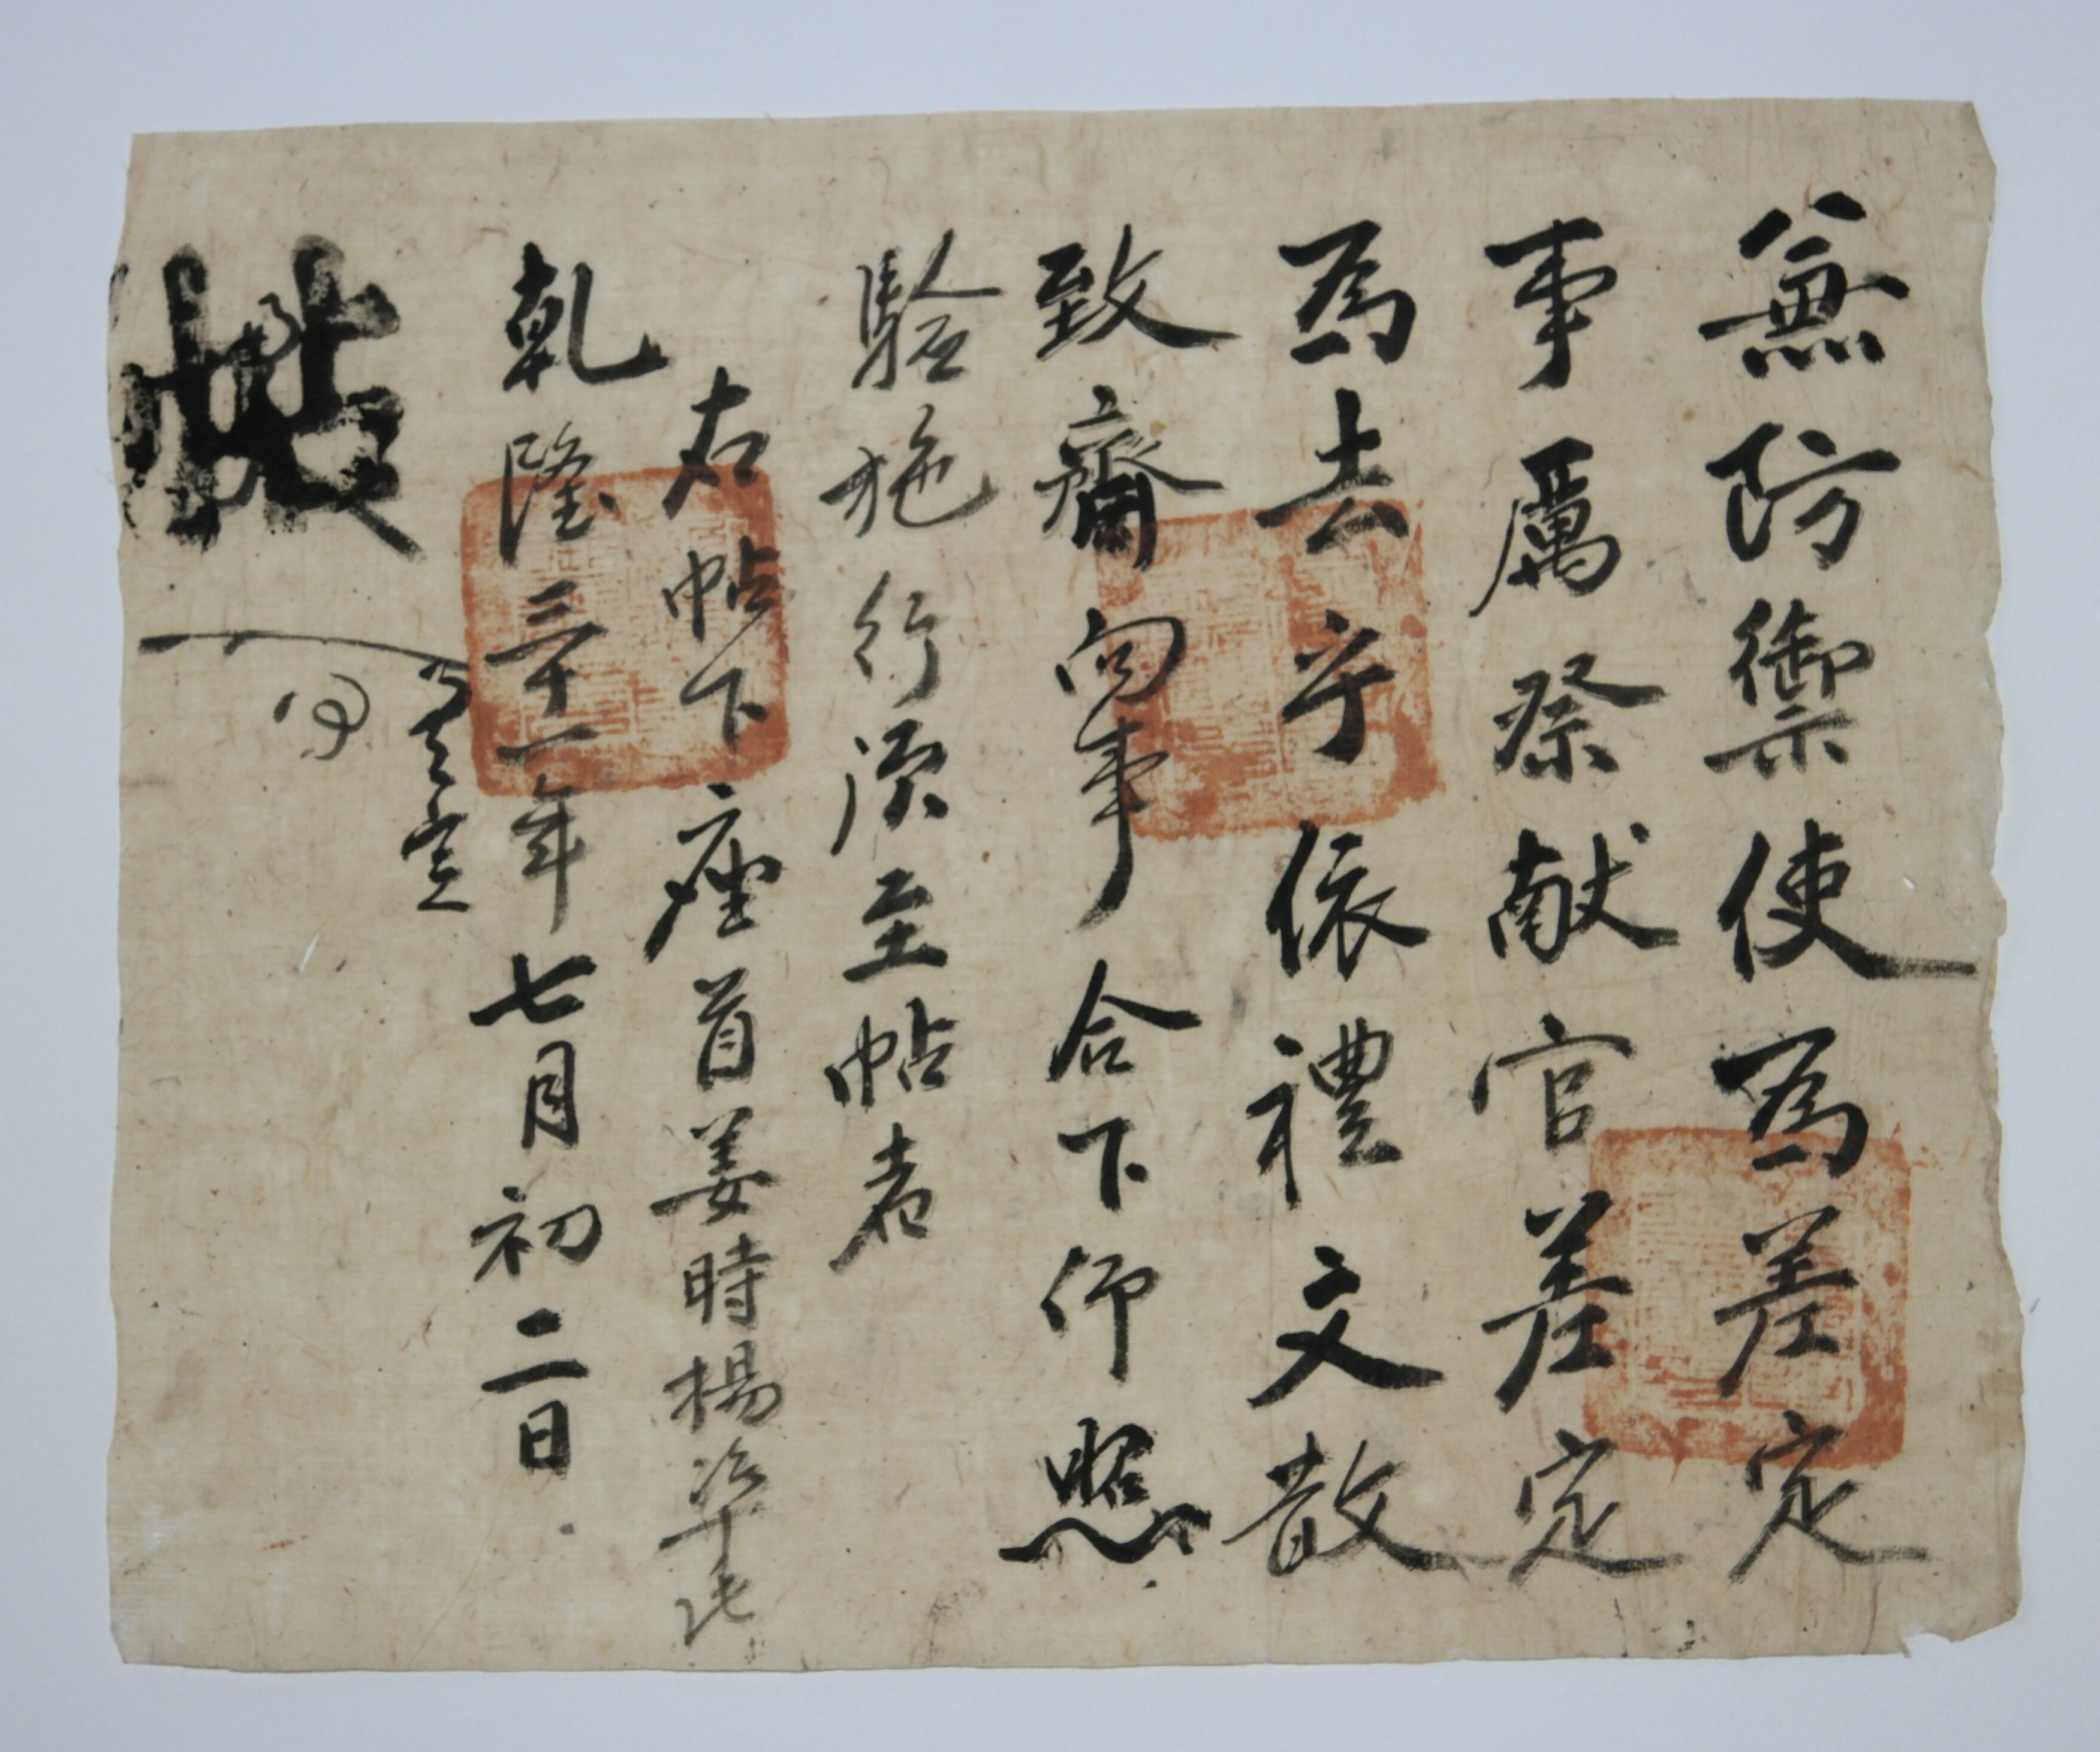 兼防禦使為差定
事厲祭献官差定
為去乎依禮文散
致齋向事合下仰照
驗施行須至帖者
右帖下座首姜時楊准此
乾隆三十一年七月初二日
帖